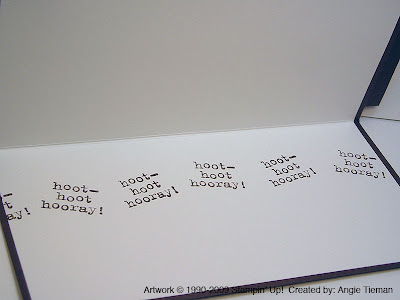 t
ay!
hoot-
hoot
hooray!
hoot-
hoot
hooray!
hoot-
hoot
hooray!
hoot-
hoot
hooray!
hoot-
hoot
hooray!
Artwork © 1990-2009 Stampin' Up! Created by: Angie Tieman